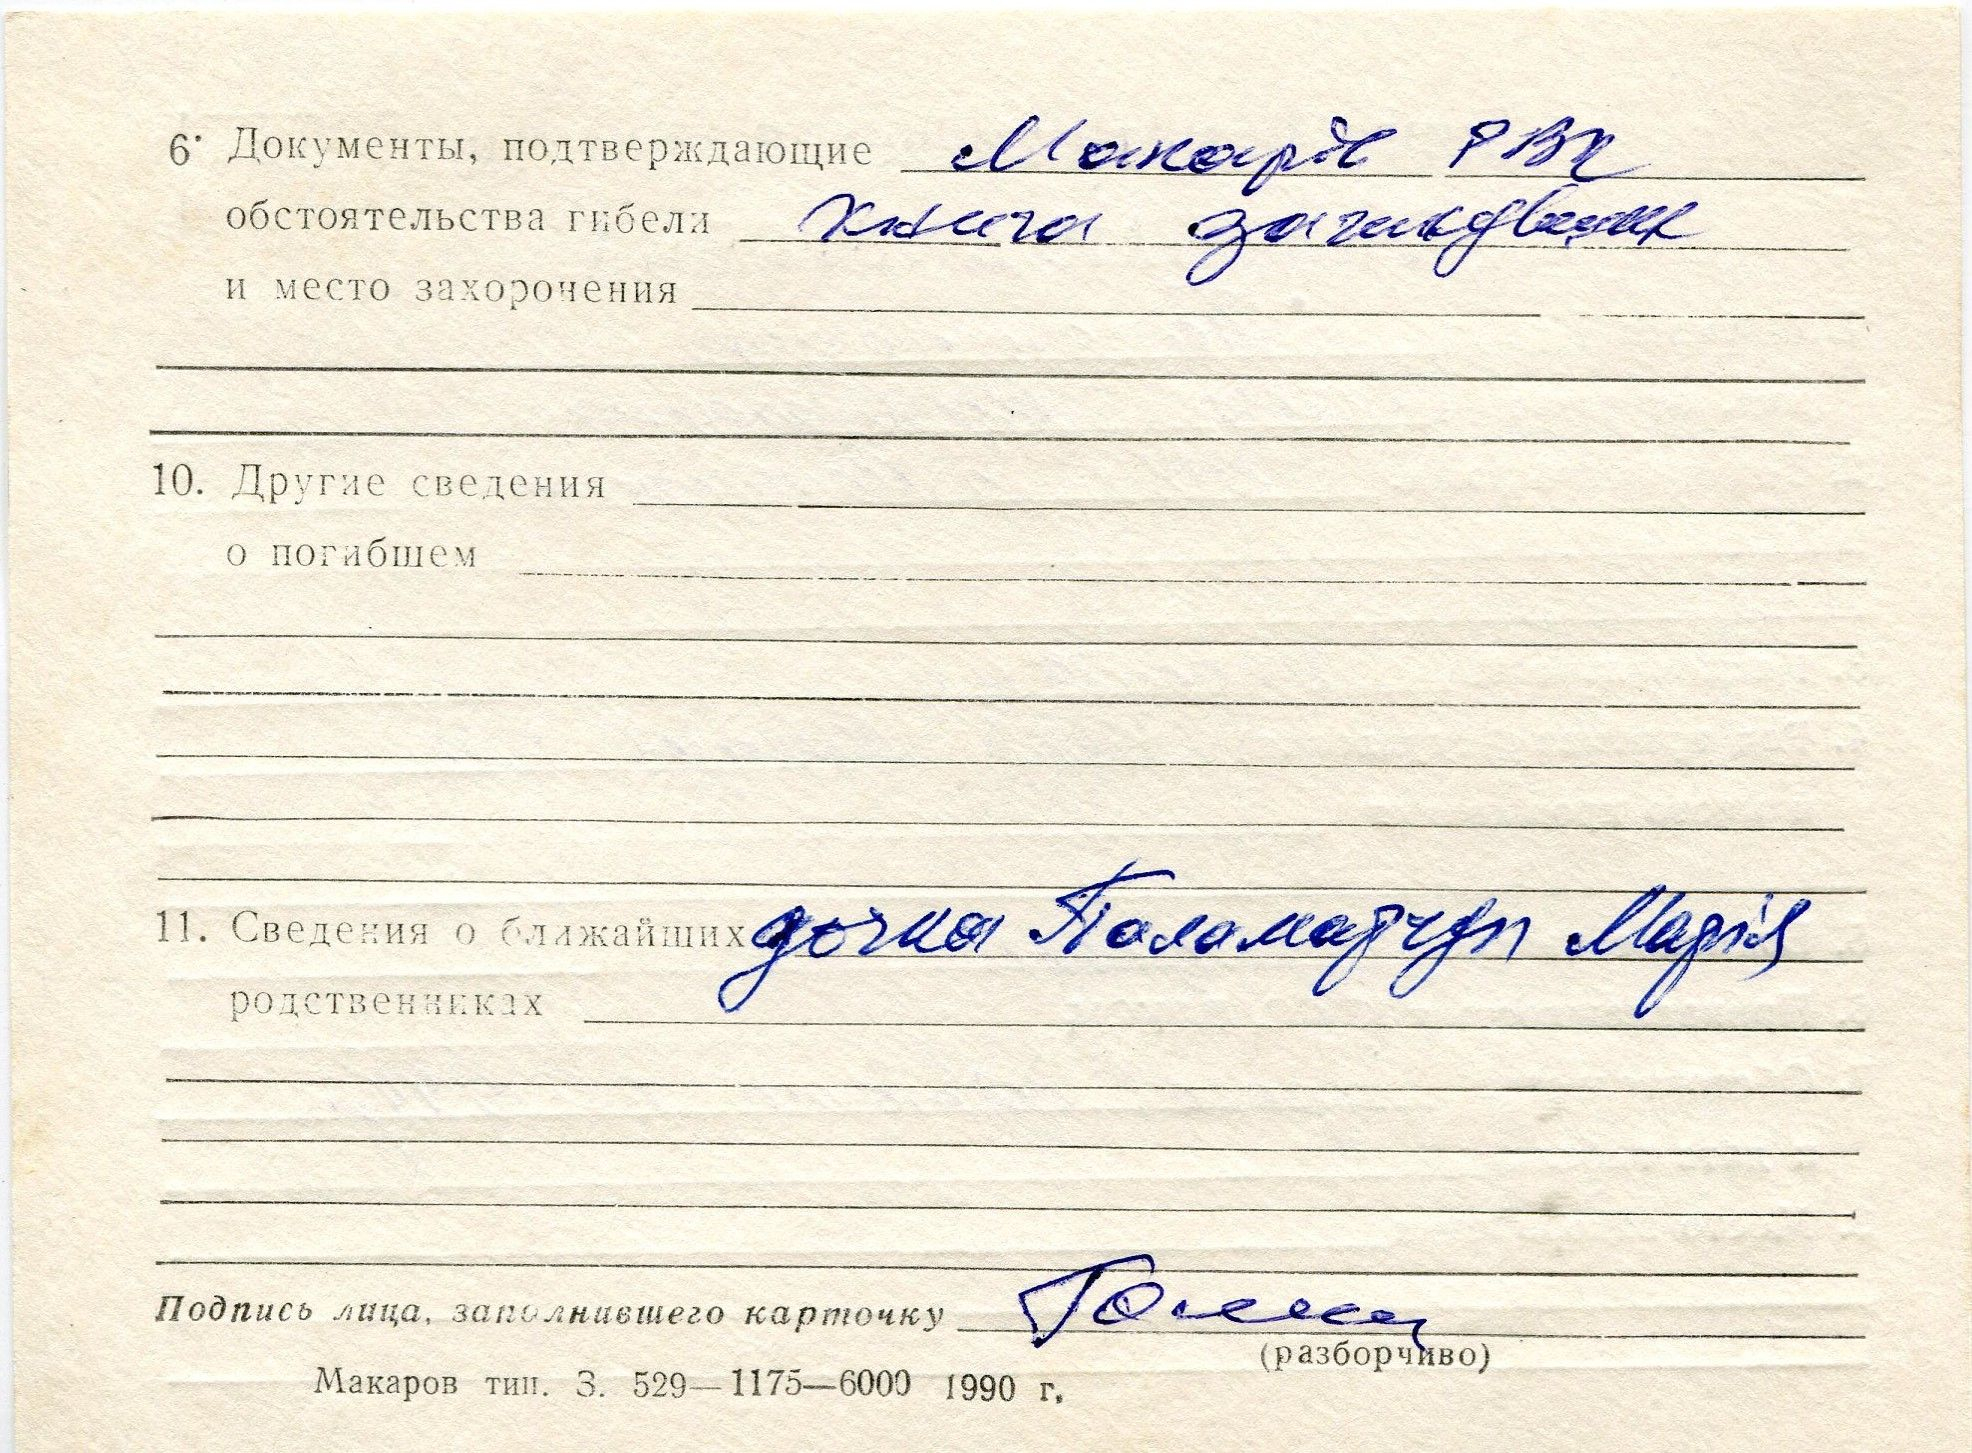 6. Документы, подтверждающие Макарів РВК
обстоятельства гибели книга
и место захоронения
10. Другие сведения
о погибшем
11. Сведения о ближайших дочка Паламарчук Марія
родственниках
Подпись лица, заполнившего карточку
(разборчиво)
Макаров тип. З. 529—1175—6000 1990 г.